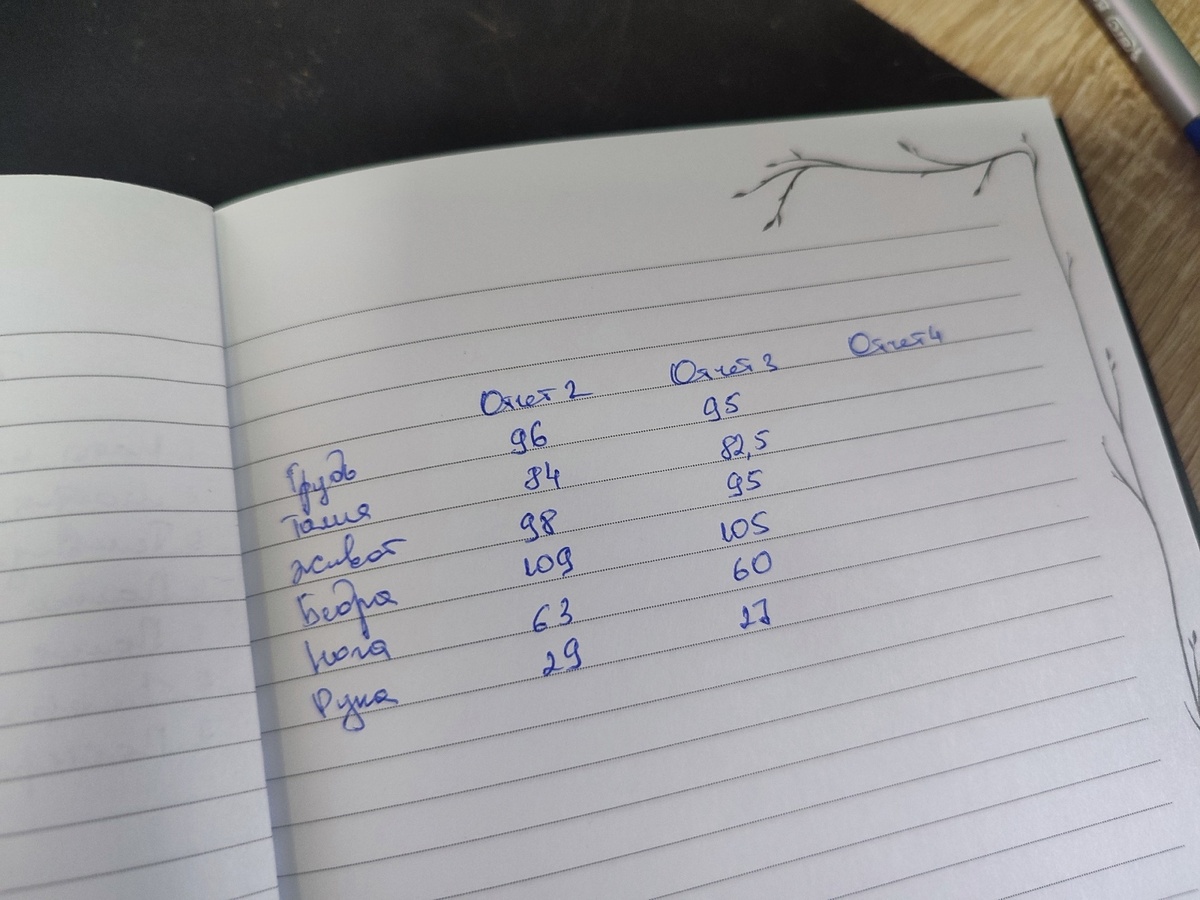 Отчет 2 Отчет 3 Отчет 4
Грудь 96 95
Талия 84 82,5
Живот 98 95
Бедра 109 105
Нога 63 60
Рука 29 27